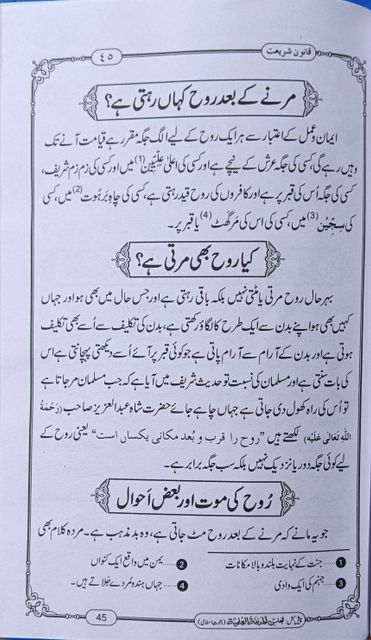 قانونِ شریعت
٤٥
مرنے کے بعد روح کہاں رہتی ہے؟
ایمان و عمل کے اعتبار سے ہر ایک روح کے لیے الگ جگہ مقرر ہے قیامت آنے تک
وہیں رہے گی، کسی کی جگہ عرش کے نیچے ہے اور کسی کی اعلیٰ علیین(1) میں اور کسی کی زم زم شریف،
کسی کی جگہ اُس کی قبر پر ہے اور کافروں کی روح قید رہتی ہے، کسی کی چاہِ برہوت(2) میں، کسی
کی سجین(3) میں، کسی کی اس کی مرگھٹ(4) یا قبر پر۔
کیا روح بھی مرتی ہے؟
بہر حال روح مرتی یا مٹتی نہیں بلکہ باقی رہتی ہے اور جس حال میں بھی ہو اور جہاں
کہیں بھی ہو اپنے بدن سے ایک طرح کا لگاؤ رکھتی ہے، بدن کی تکلیف سے اُسے بھی تکلیف
ہوتی ہے اور بدن کے آرام سے آرام پاتی ہے جو کوئی قبر پر آئے اُسے دیکھتی پہچانتی ہے اس
کی بات سنتی ہے اور مسلمان کی نسبت تو حدیث شریف میں آیا ہے کہ جب مسلمان مر جاتا ہے
تو اُس کی راہ کھول دی جاتی ہے جہاں چاہے جائے حضرت شاہ عبد العزیز صاحب (رَحْمَةُ
اللہ تَعَالٰی عَلَیْہِ) لکھتے ہیں "روح را قرب و بعد مکانی یکساں است" یعنی روح کے
لیے کوئی جگہ دور یا نزدیک نہیں بلکہ سب جگہ برابر ہے۔
رُوح کی موت اور بعض اَحوال
جو یہ مانے کہ مرنے کے بعد روح مٹ جاتی ہے، وہ بد مذہب ہے۔ مردہ کلام بھی
1 ... جنت کے نہایت بلند و بالا مکانات
2 ... یمن میں واقع ایک کنواں
3 ... جہنم کی ایک وادی
4 ... جہاں ہندو مُردے جَلاتے ہیں۔
45